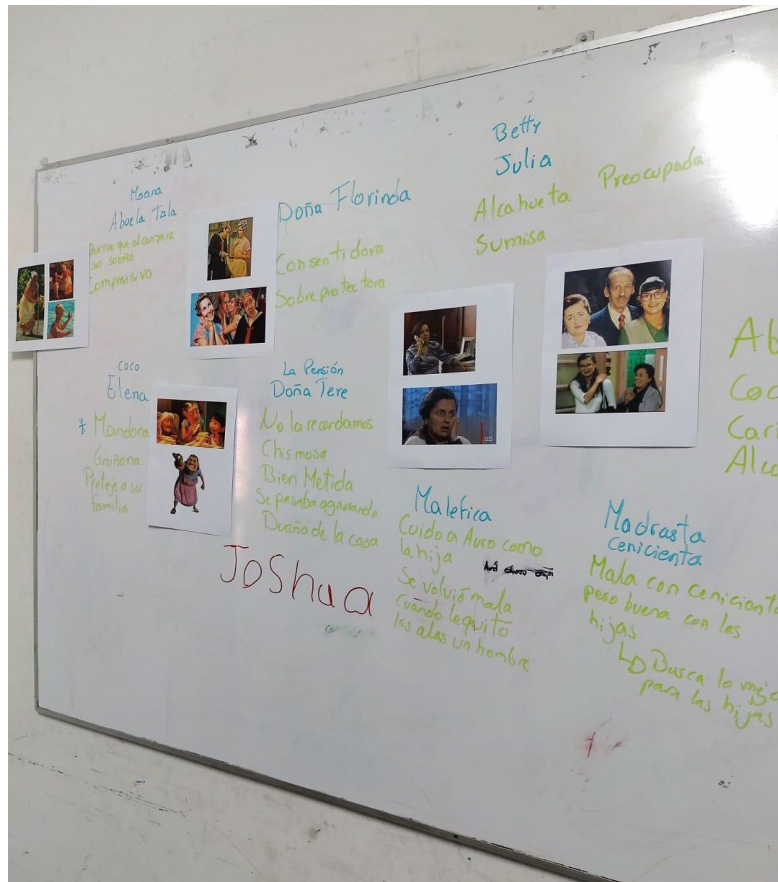 Moana
Abuela Tala
Quería que alcanzara
sus sueños
Comprensiva
Doña Florinda
Consentidora
Sobreprotectora
Betty
Julia
Alcahueta Preocupada
Sumisa
coco
Elena
* Mandona
Gruñona
Proteje a su
familia
La Pensión
Doña Tere
No la recordamos
Chismosa
Bien Metida
Se pasaba agarrando
Dueña de la casa
Joshua
Malefica
Cuido a Auro como
la hija
Se volvió mala
cuando le quitó
las alas un hombre
Madrasta
cenicienta
Mala con cenicienta
pero buena con las
hijas
Busca lo mejo
para las hijas
Ab
Coc
Cari
Alca